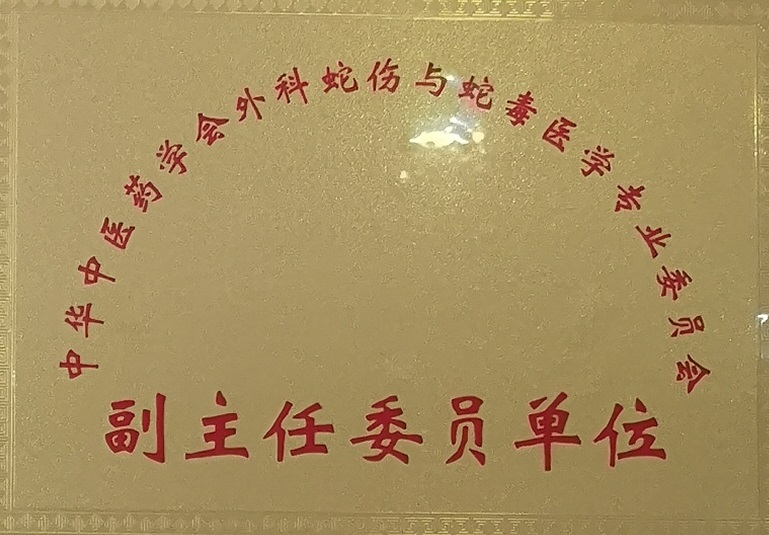 中华中医药学会外科蛇伤与蛇毒医学专业委员会
副主任委员单位